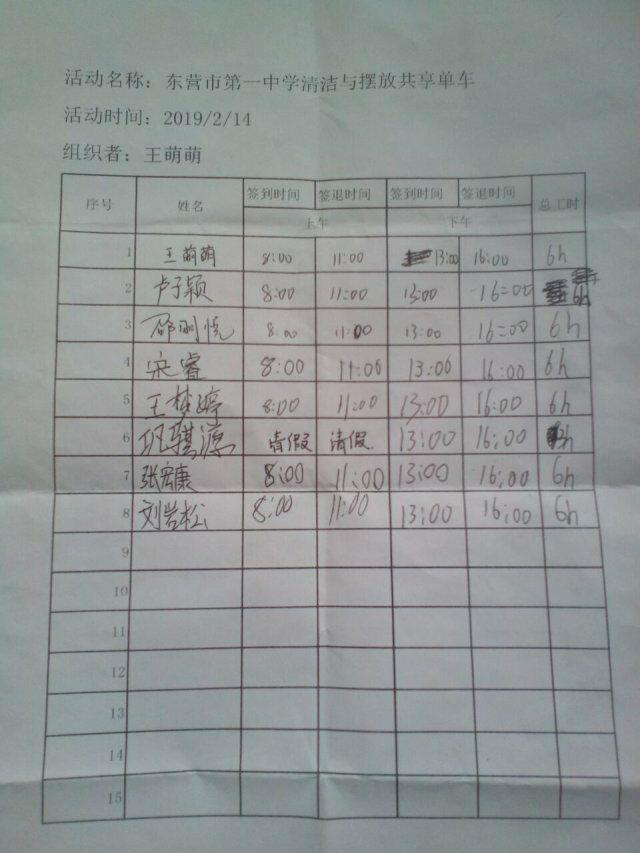 活动名称：东营市第一中学清洁与摆放共享单车
活动时间：2019/2/14
组织者：王萌萌
序号 姓名 签到时间 签退时间 签到时间 签退时间 总工时
上午 下午
1 王萌萌 8:00 11:00 13:00 16:00 6h
2 卢子颖 8:00 11:00 13:00 16:00 6h
3 8:00 11:00 13:00 16:00 6h
4 宋睿 8:00 11:00 13:00 16:00 6h
5 王梦婷 8:00 11:00 13:00 16:00 6h
6 请假 请假 13:00 16:00 3h
7 张宏康 8:00 11:00 13:00 16:00 6h
8 刘岩松 8:00 11:00 13:00 16:00 6h
9
10
11
12
13
14
15